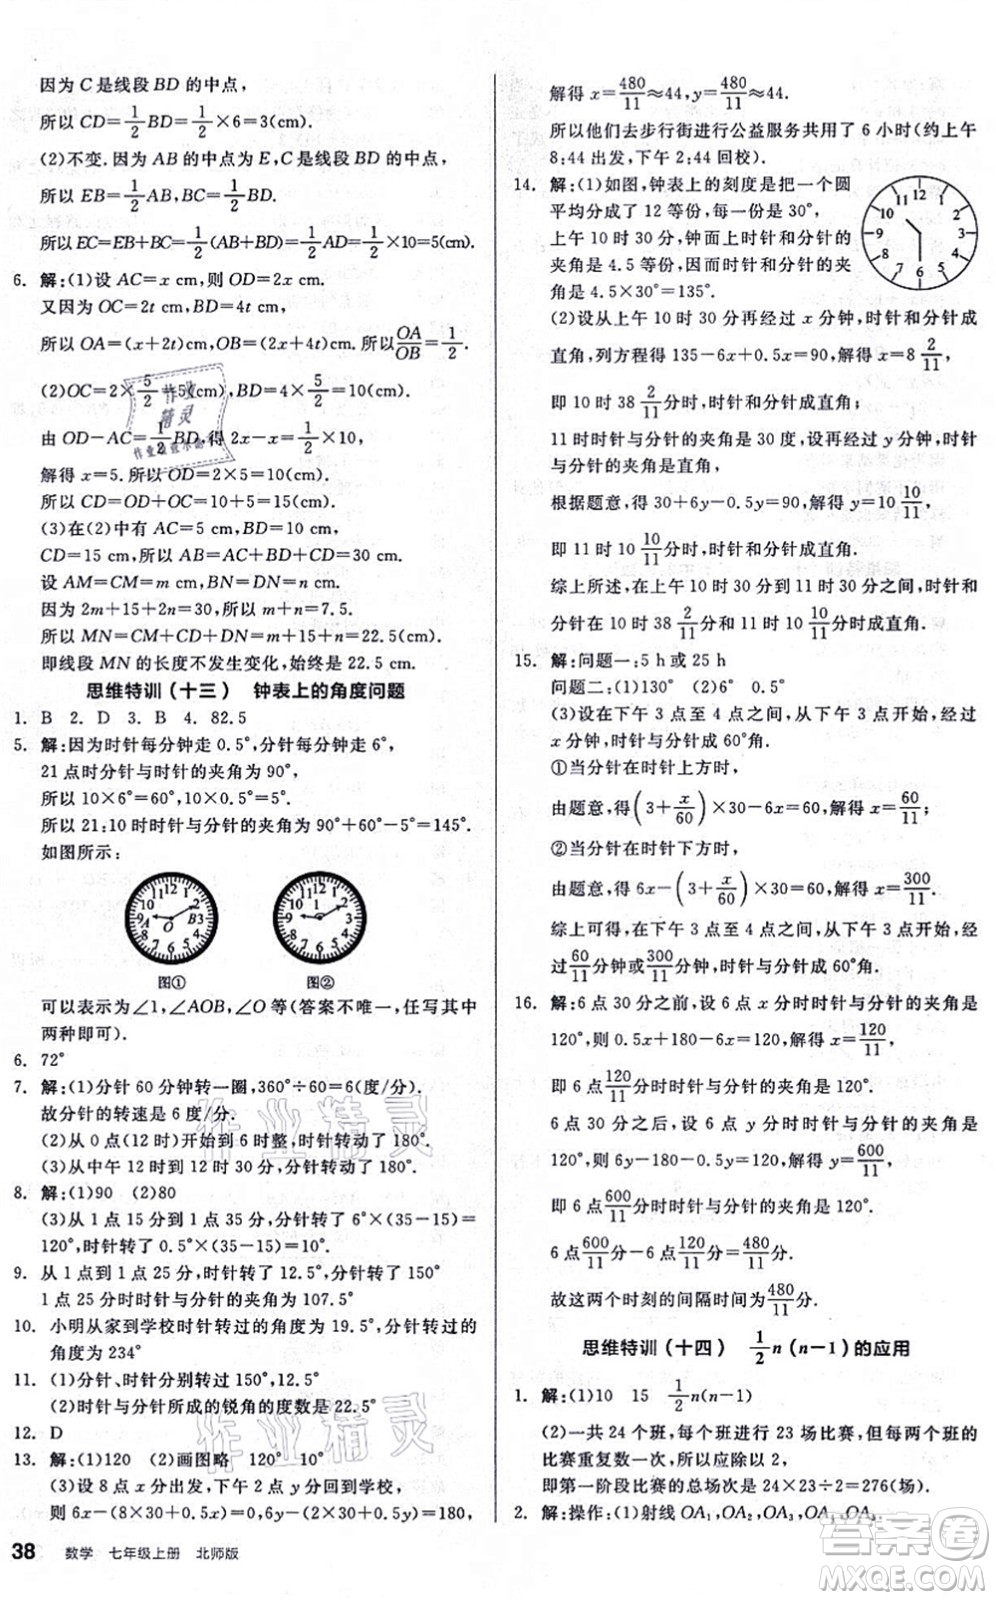 因为 C 是线段 BD 的中点,
所以 CD=1/2BD=1/2×6=3(cm).
(2)不变. 因为 AB 的中点为 E,C 是 BD 的中点,
所以 EB=1/2AB,BC=1/2BD.
所以 EC=EB+BC=1/2(AB+BD)=1/2AD=1/2×10=5(cm).
6. 解:(1)设 AC=x cm,则 OD=2x cm.
又因为 OC=2t cm,DB=4t cm,
所以 OA=(x+2t)cm,OB=(2x+4t)cm. 所以OA/OB=1/2.
(2)OC=2×5/2=5(cm),BD=4×5/2=10(cm).
由 OD-AC=1/2BD,得 2x-x=1/2×10,
解得 x=5.所以OD=2×5=10(cm).
所以 CD=OD+OC=10+5=15(cm).
(3)在(2)中有 AC=5 cm,BD=10 cm,
CD=15 cm,所以 AB=AC+BD+CD=30 cm.
设 AM=CM=m cm,BN=DN=n cm.
因为 2m+15+2n=30,所以 m+n=7.5.
所以 MN=CM+CD+DN=m+15+n=22.5(cm).
即线段 MN 的长度不发生变化,始终是 22.5 cm.
思维特训(十三) 钟表上的角度问题
1. B 2. D 3. B 4. 82.5
5. 解:因为时针每分钟走 0.5°,分针每分钟走 6°,
21 点时分针与时针的夹角为 90°,
所以 10×6°=60°,10×0.5°=5°.
所以 21:10 时时针与分针的夹角为 90°+60°-5°=145°.
如图所示:
图① 图②
可以表示为∠1,∠AOB,∠O 等(答案不唯一,任写其中
两种即可).
6. 72°
7. 解:(1)分针 60 分钟转一圈,360°÷60=6(度/分).
故分针的转速是 6 度/分.
(2)从 0 点(12 时)开始到 6 时整,时针转动了 180°.
(3)从中午 12 时到 12 时 30 分,分针转动了 180°.
8. 解:(1)90 (2)80
(3)从 1 点 15 分到 1 点 35 分,分针转了 6°×(35-15)=
120°,时针转了 0.5°×(35-15)=10°.
9. 从 1 点到 1 点 25 分,时针转了 12.5°,分针转了 150°
1 点 25 分时分针与时针的夹角为 107.5°
10. 小明从家到学校时针转过的角度为 19.5°,分针转过
的角度为 234°
11. (1)分针、时针分别转过 150°,12.5°
(2)时针与分针所成的锐角的度数是 22.5°
12. D
13. 解:(1)120 (2)画图略 120° 10°
(3)设 8 点 x 分出发,下午 2 点 y 分回学校,
则 6x-(8×30+0.5x)=0,6y-(2×30+0.5y)=180,
38 数学 七年级上册 北师版
解得 x=480/11≈44,y=480/11≈44.
所以他们去步行街进行公益服务共用了 6 小时(约上午
8:44 出发,下午 2:44 回校).
14. 解:(1)如图,钟表上的刻度是把一个圆
平均分成了 12 等份,每一份是 30°,
上午 10 时 30 分,钟面上时针和分针的
夹角是 4.5 等份,因而时针和分针的夹
角是 4.5×30°=135°.
(2)设从上午 10 时 30 分再经过 x 分钟,时针和分针成
直角,列方程得 135-6x+0.5x=90,解得 x=8 2/11,
即 10 时 38 2/11分时,时针和分针成直角;
11 时时针与分针的夹角是 30 度,设再经过 y 分钟,时针
与分针的夹角是直角,
根据题意,得 30+6y-0.5y=90,解得 y=10 10/11,
即 11 时 10 10/11分时,时针和分针成直角.
综上所述,在上午 10 时 30 分到 11 时 30 分之间,时针和
分针在 10 时 38 2/11分与 11 时 10 10/11分时成直角.
15. 解:问题一:5 h 或 25 h
问题二:(1)130° (2)6° 0.5°
(3)设在下午 3 点至 4 点之间,从下午 3 点开始,经过
x 分钟,时针与分针成 60°角.
①当分针在时针上方时,
由题意,得(3+x/60)×30-6x=60,解得 x=60/11;
②当分针在时针下方时,
由题意,得 6x-(3+x/60)×30=60,解得 x=300/11.
综上可得,在下午 3 点至 4 点之间,从下午 3 点开始,经
过60/11分钟或300/11分钟,时针与分针成 60°角.
16. 解:6 点 30 分之前,设 6 点 x 分时时针与分针的夹角是
120°,则 180+0.5x-6x=120,解得 x=120/11,
即 6 点120/11分时时针与分针的夹角是 120°.
6 点 30 分之后,设 6 点 y 分时时针与分针的夹角是
120°,则 6y-180-0.5y=120,解得 y=600/11,
即 6 点600/11分时时针与分针的夹角是 120°.
6 点600/11分-6 点120/11分=480/11分.
故这两个时刻的间隔时间为480/11分.
思维特训(十四) 1/2n(n-1)的应用
1. 解:(1)10 15 1/2n(n-1)
(2)一共 24 个班,每个班进行 23 场比赛,但每两个班的
比赛重复数一次,所以应除以 2,
即第一阶段比赛的总场次是 24×23÷2=276(场).
2. 解:操作:(1)射线 OA₁,OA₂,OA₃.
作业精灵
作业精灵
MXQE.COM